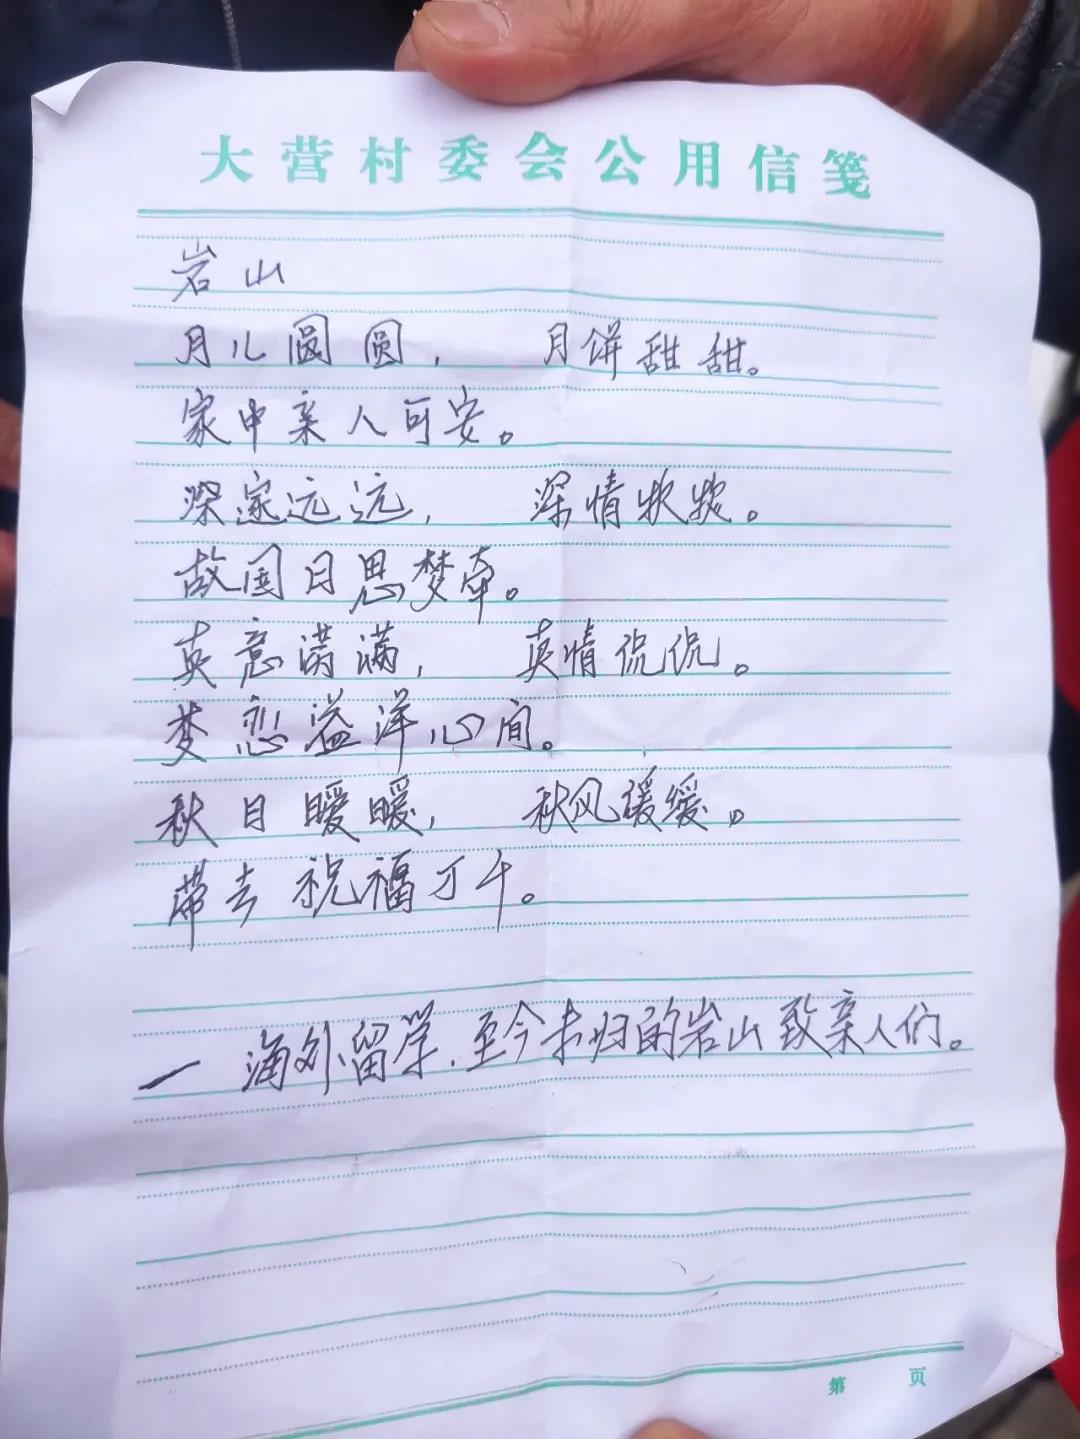 大营村委会公用信笺
岩山
月儿圆圆， 月饼甜甜。
家中亲人可安。
深家远远， 深情
故国日思梦牵。
英意满满， 英情侃侃。
梦恋溢洋心间。
秋日暖暖， 秋风缓缓。
带去祝福万千。
一 海外留学.至今未归的岩山致亲人们。
第 页